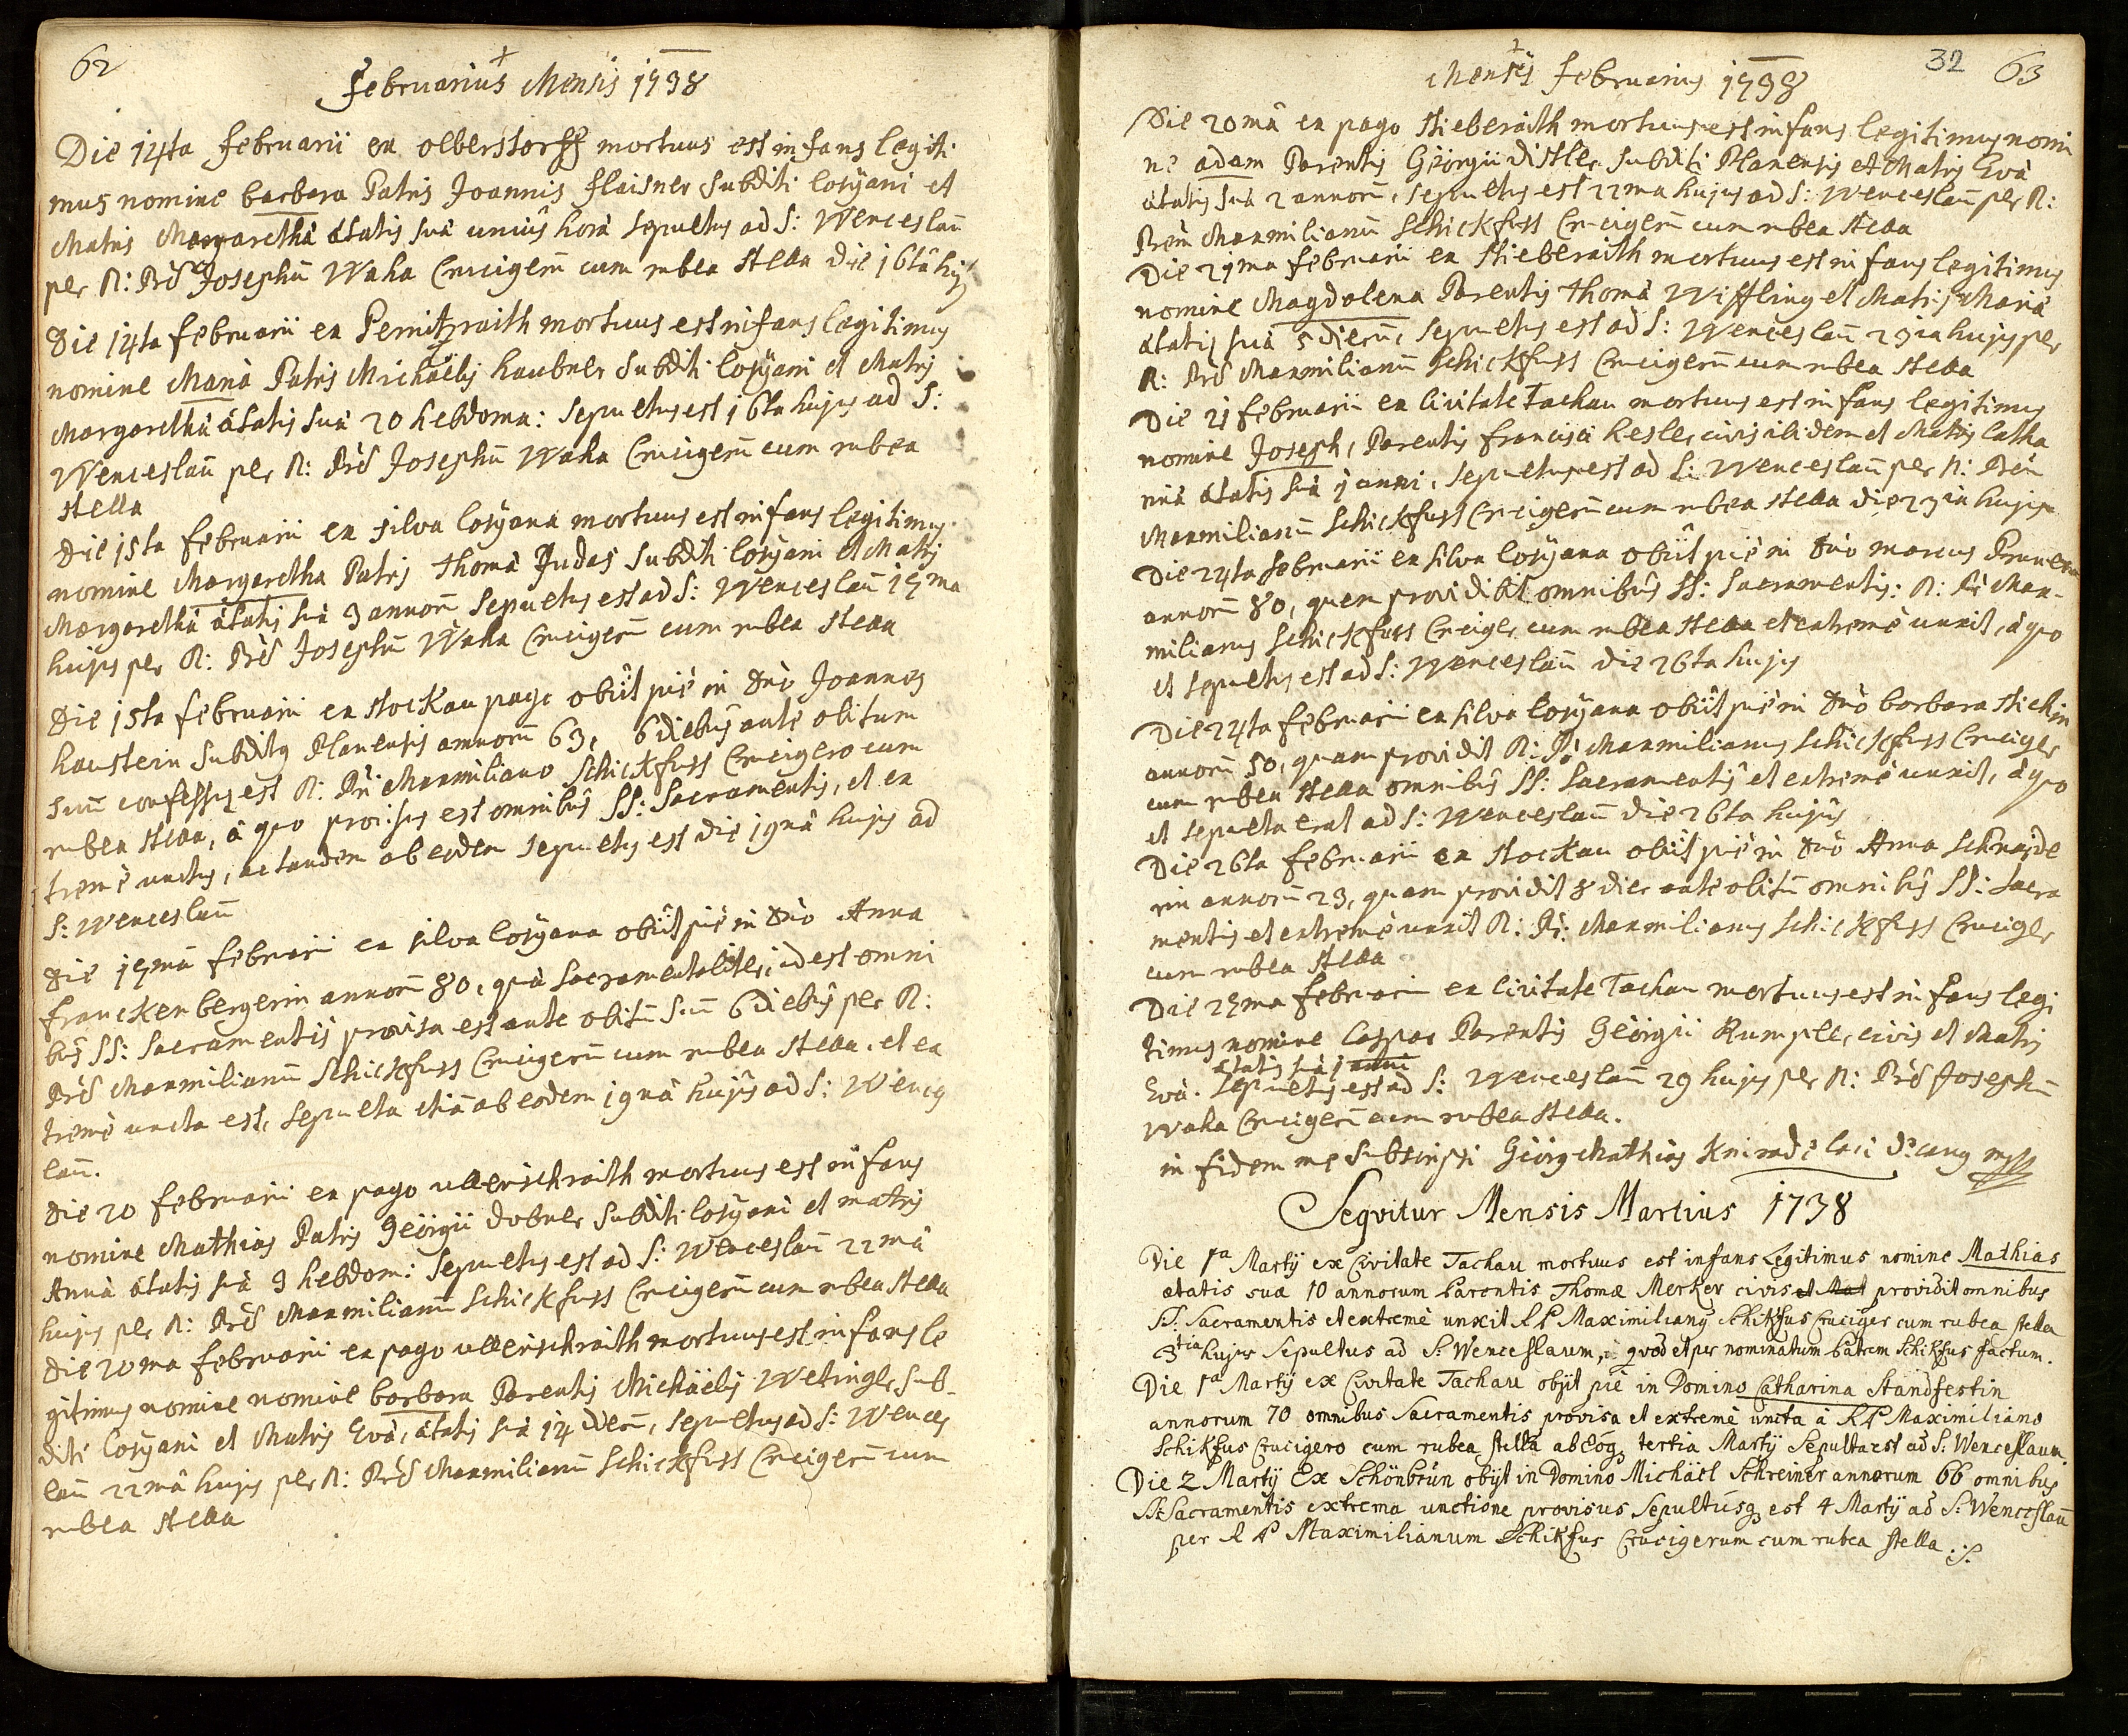 62
Februarius Mensis 1738
Die 14ta Februarii ex olberstorff mortuus est infans legiti
mus nomine barbara Patris Joannis flaisner subditi losÿani et
Matris Margarethâ ætatis suâ unius horâ sepultus ad S: Wenceslaũ
per R: Prẽ Josephũ Waha Crucigerũ cum rubea stella die 16tâ huj9
Die 14ta februarii ex Pernitzraith mortuus est infans legitimus
nomine Mariâ Patris Michäelis haubner subditi losÿani et Matris
Margarethâ ætatis suâ 20 hebdoma: sepultus est 16ta hujus ad S:
Wenceslaũ per R: Prẽ Josephũ Waha Crucigerũ cum rubea
stella
Die 15ta februarii ex silva losÿana mortuus est infans legitimus
nomine Margaretha Patris Thomâ Judas subditi losÿani et Matris
Margarethâ ætatis suâ 3 annorũ sepultus est ad S: Wenceslaũ 17ma
hujus per R: Prẽ Josephũ Waha Crucigerũ cum rubea stella
Die 15ta februarii ex stockau pago obiit piè in Dnõ Joannes
haustein subditus Planensis annorũ 63, 6 diebus ante obitum
suũ confessus est R: Pri Maxmiliano Schickfuss Crucigero cum
rubea stella, à quo provisus est omnibus SS: Sacramentis, et ex
tremè unctus, ac tandem ab eodem sepultus est die 19nâ hujus ad
S: Wenceslaũ
Die 17mâ februarii ex silva losÿana obiit piè in Dnõ Anna
franckenbergerin annorũ 80, quâ sacramentaliter, id est omni
bus SS: Sacramentis provisa est ante obitũ suũ 6 diebus per R:
Prẽ Maxmilianũ Schickfuss Crucigerũ cum rubea stella. et ex
tremè uncta est, sepulta etiã ab eodem 19nâ hujus ad S: Wences
laũ.
Die 20 februarii ex pago ullerschraith mortuus est infans
nomine Mathias Patris Geörgii dobner subditi losÿani et matris
Annâ ætatis suâ 9 hebdom: sepultus est ad S: Wenceslaũ 22mâ
hujus per R: Prẽ Maxmilianũ Schickfuss Crucigerũ cum rubea stella
Die 20ma februarii ex pago ullerschraith mortuus est infans le
gitimus nomine nomine barbara Parentis Michäelis Wetingler sub-
diti losÿani et Matris Evâ, ætatis suâ 14 dierũ, sepultus ad S: Wences
laũ 22mâ hujus per R: Prẽ Maxmilianũ Schickfuss Crucigerũ cum
rubea stella
32 63
Mensis februarius 1738
Die 20mâ ex pago stieberaith mortuus est infans legitimus nomi
nè adam Parentis Geörgii distler subditi Planensis et Matris Evâ
ætatis suâ 2 annorũ, sepultus est 22ma hujus ad S: Wenceslaũ per R:
Prẽm Maxmilianũ Schickfuss Crucigerũ cum rubea stella
Die 21ma februarii ex stieberaith mortuus est infans legitimus
nomine Magdalena Parentis Thomâ Wiffling et Matris Mariâ
ætatis suâ 5 dierũ, sepultus est ad S: Wenceslaũ 23ia hujus per
R: Prẽ Maxmilianũ Schickfuss Crucigerũ cum rubea stella
Die 21 februarii ex Civitate Tachau mortuus est infans legitimus
nomine Joseph, Parentis francisci kesler civis ibidem et Matris Catha
rinâ ætatis suâ 1 anni, sepultus est ad S: Wenceslaũ per R: Prẽm
Maxmilianũ Schickfuss Crucigerũ cum rubea stella die 23ia hujus
Die 24ta februarii ex silva losÿana obiit piè in Dnõ marcus
annorũ 80, quem providit omnibus SS: Sacramentis: R: Pr: Max-
milianus Schickfuss Cruciger cum rubea stella et extremè unxit, à quo
et sepultus est ad S: Wenceslaũ die 26ta hujus
Die 24ta februarii ex silva losÿana obiit piè in Dnõ barbara stickin
annorũ 50, quam providit R: Pr: Maxmilianus Schickfuss Cruciger
cum rubea stella omnibus SS: Sacramentis et extremè unxit, à quo
et sepulta erat ad S: Wenceslaũ die 26ta hujus
Die 26ta februarii ex stockau obiit piè in Dnõ Anna Schnaide
rin annorũ 23, quam providit 8 dies ante obitũ omnibus SS: Sacra
mentis et extremè unxit R: Pr: Maxmilianus Schickfuss Cruciger
cum rubea stella
Die 27ma februarii ex Civitate Tachau mortuus est infans legi
timus nomine Caspar Parentis Geörgii Rumpler, civis et Matris
ætatis suâ 1 anni
Evâ. Sepultus est ad S: Wenceslaũ 29 hujus per R: Prẽ Josephũ
Waha Crucigerũ cum rubea stella.
in fidem me subscripsi Geörg Mathias Knirade loci decanus mpp
Seqvitur Mensis Martius 1738
Die 1a Martÿ ex Civitate Tachau mortuus est infans Legitimus nomine Mathias
ætatis suæ 10 annorum Parentis Thomæ Merker civis et Mat providit omnibus
SS: Sacramentis et extremè unxit R P Maximilianus Schikfus Cruciger cum rubea stella
3tia hujus Sepultus ad S: Wenceslaum, qvod et per nominatum Patrem Schikfus factum.
Die 1a Martÿ ex Civitate Tachau obÿt piè in Domino Catharina Standfestin
annorum 70 omnibus Sacramentis provisa et extremè uncta à R P Maximiliano
Schikfus Crucigero cum rubea stellâ ab eoq3 tertia Martÿ Sepulta est ad S: Wenceslaum.
Die 2 Martÿ Ex Schönbrun obÿt in Domino Michäel Schreiner annorum 66 omnibus
SS: Sacramentis extrema unctione provisus Sepultusq3 est 4 Martÿ ad S: Wenceslaũ
per R P Maximilianum Schikfus Crucigerum cum rubea stella